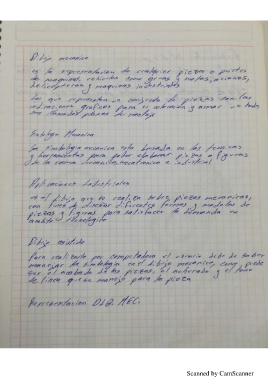 Dibujo mecanico
es la representacion de cualquier pieza o partes
de maquinas, vehiculos como gruas y motos, aviones,
helicopteros y maquinas industriales
Los que representan un conjunto de piezas con las
indicaciones graficas para su
son llamados planos de montaje
Simbologia Mecanica
La simbologia mecanica esta basada en las
y herramientas para poder elaborar piezas o figuras
de la rama industrial
Aplicaciones industriales
es el dibujo que se realiza sobre piezas mecanicas,
con fines de diseñar diferentes formas y modelos de
piezas y figuras para satisfacer la demanda en
ambito tecnologico
Dibujo asistido
Para realizarlo por computadora el usuario debe de saber
manejar la simbologia en el dibujo mecanico, como puede
ser el acabado de las piezas, el
de linea que se maneja para la pieza
Representacion DLZ MEC.
Scanned by CamScanner